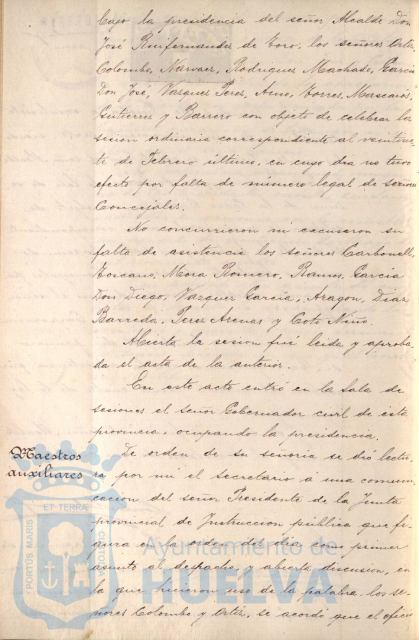 bajo la presidencia del señor Alcalde Don
José Ruifernandez de Toro, los señores Ortiz,
Colombo, Narvaez, Rodriguez Machado, Garcia
Don José, Vazquez Perez, Torres, Mascarós,
Gutierrez y Barrero con objeto de celebrar la
sesion ordinaria correspondiente al veintisie-
te de Febrero último, en cuyo dia no tuvo
efecto por falta de número legal de señores
Concejales.
No concurrieron ni excusaron su
falta de asistencia los señores Carbonell,
Toscano, Mora Romero, Ramos, Garcia
Don Diego, Vazquez Garcia, Aragon, Diaz
Barreda, Perez Arenas y Coto Niño.
Abierta la sesion fué leida y aproba-
da el acta de la anterior.
En este acto entró en la Sala de
sesiones el señor Gobernador civil de esta
provincia, ocupando la presidencia.
Maestros
auxiliares
De orden de su señoria se dió lectu-
ra por mi el Secretario a una comuni-
cacion del señor Presidente de la Junta
provincial de Instruccion pública que fi-
gura en la orden del dia como primer
asunto al despacho, y abierta discusion, en
la que hicieron uso de la palabra los se-
ñores Colombo y Ortiz, se acordó que el oficio
PORTUS MARIS
ET TERRÆ
CUSTODIA
Ayuntamiento de
HUELVA